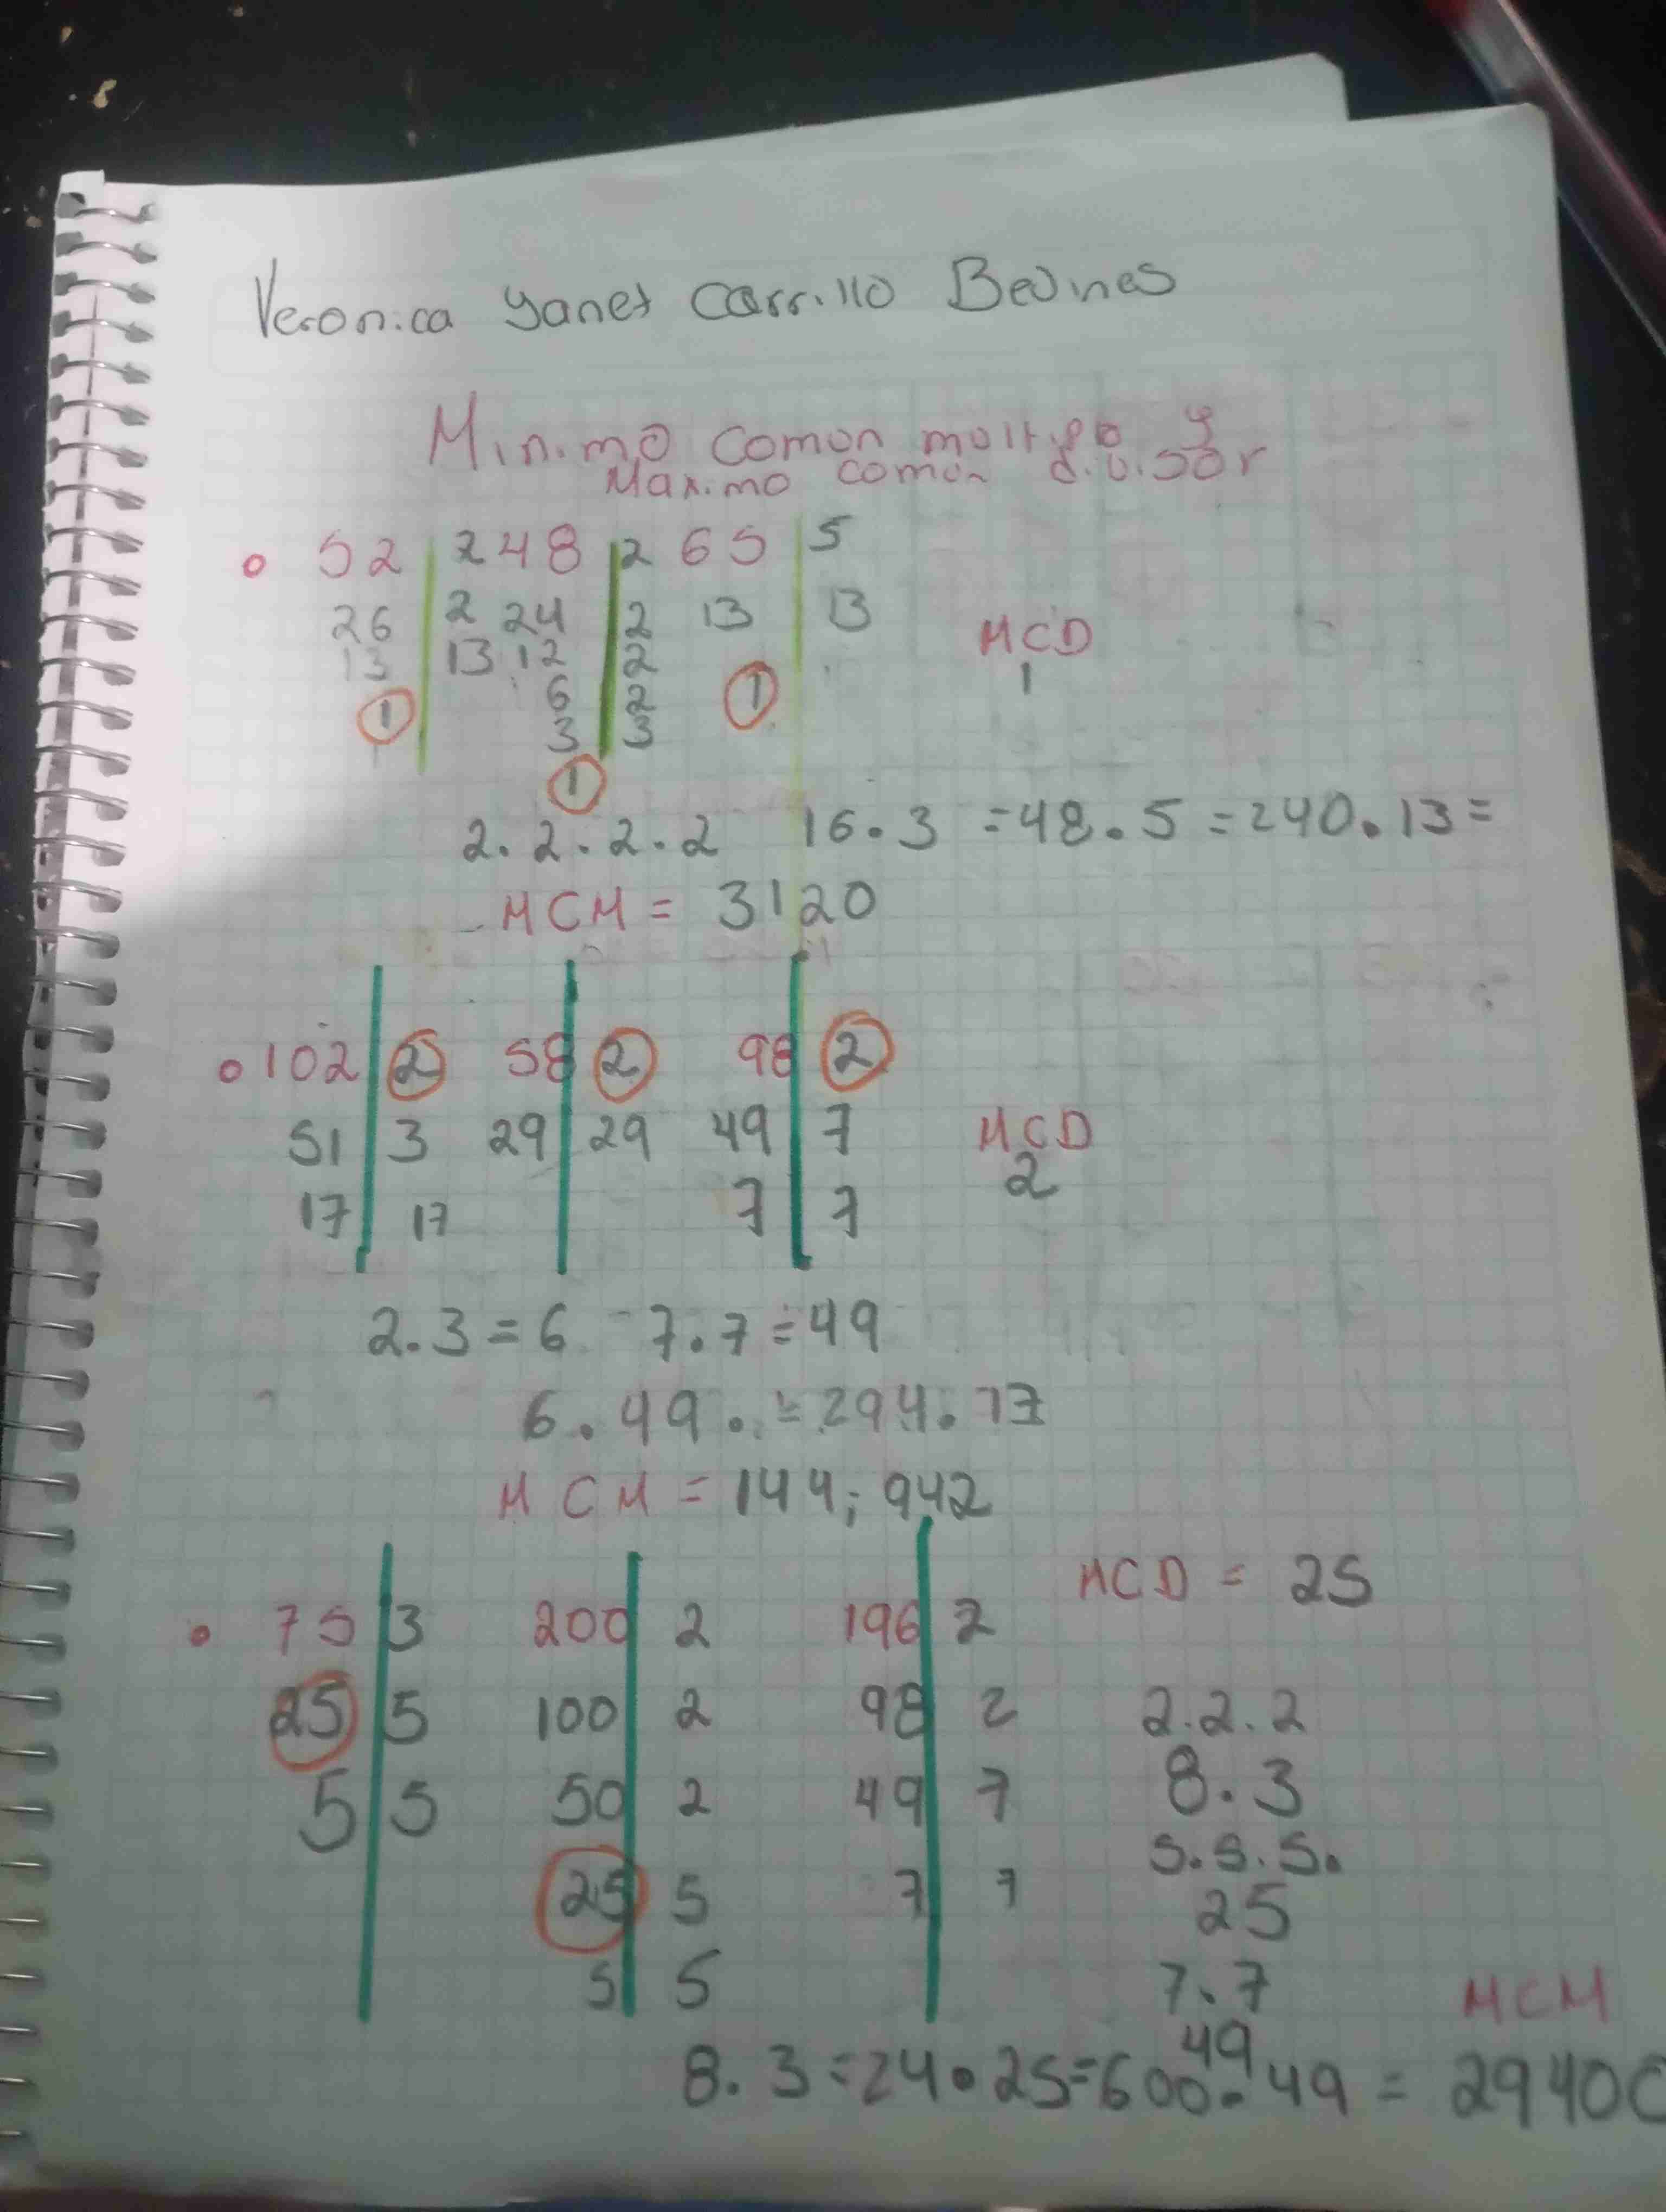 Veronica Yanet Carrillo Bevines
Minimo comun multiplo y
Maximo comun divisor
52 2 48 2 65 5
26 2 24 2 13 13 MCD
13 13 12 2 1
1 6 2 1
3 3
1
2. 2. 2. 2 16. 3 =48. 5 =240. 13=
MCM = 3120
102 2 58 2 98 2
51 3 29 29 49 7 MCD
17 17 7 7 2
2.3=6 7.7=49
6. 49. =294. 17
MCM = 144; 942
MCD = 25
75 3 200 2 196 2
25 5 100 2 98 2 2.2.2
5 5 50 2 49 7 8.3
5.5.5.
25 5 7 7 25
5 5 7.7 MCM
49
8. 3=24.25=600.49 = 29400